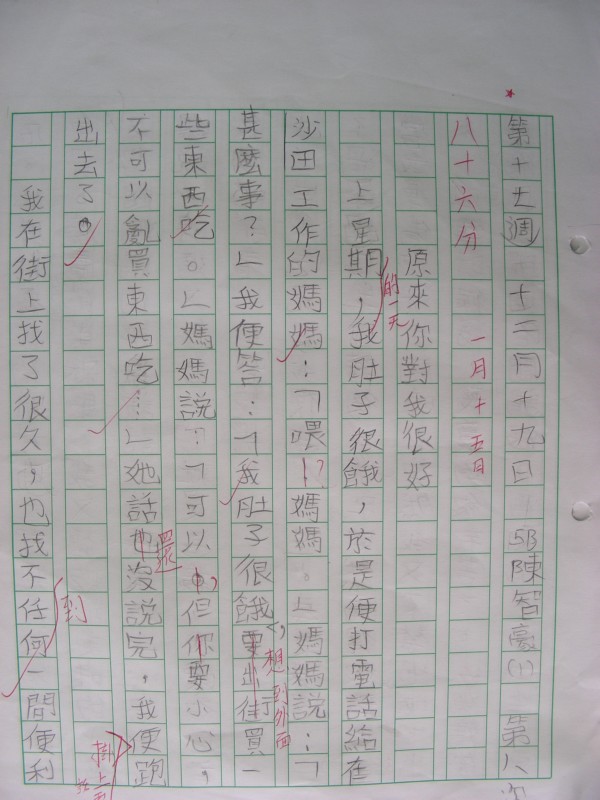 第十七週 十二月十九日 5B陳智豪(1) 第八次
八十六分 一月十五日
原來你對我很好
上星期,我肚子很餓,於是便打電話給在
的一天
沙田工作的媽媽:「喂!?媽媽。」媽媽說:「
甚麼事?」我便答:「我肚子很餓,要出街買一
想到外面
些東西吃。」媽媽說:「可以,但你要小心,
不可以亂買東西吃……」她話也沒說完,我便跑
還
掛上
出去了。
我在街上找了很久,也找不任何一間便利
到